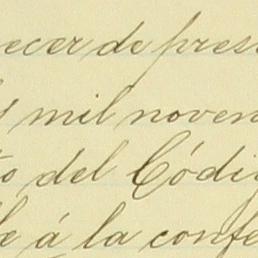 ecer de pres
mil noven
o del Códi
e á la confe